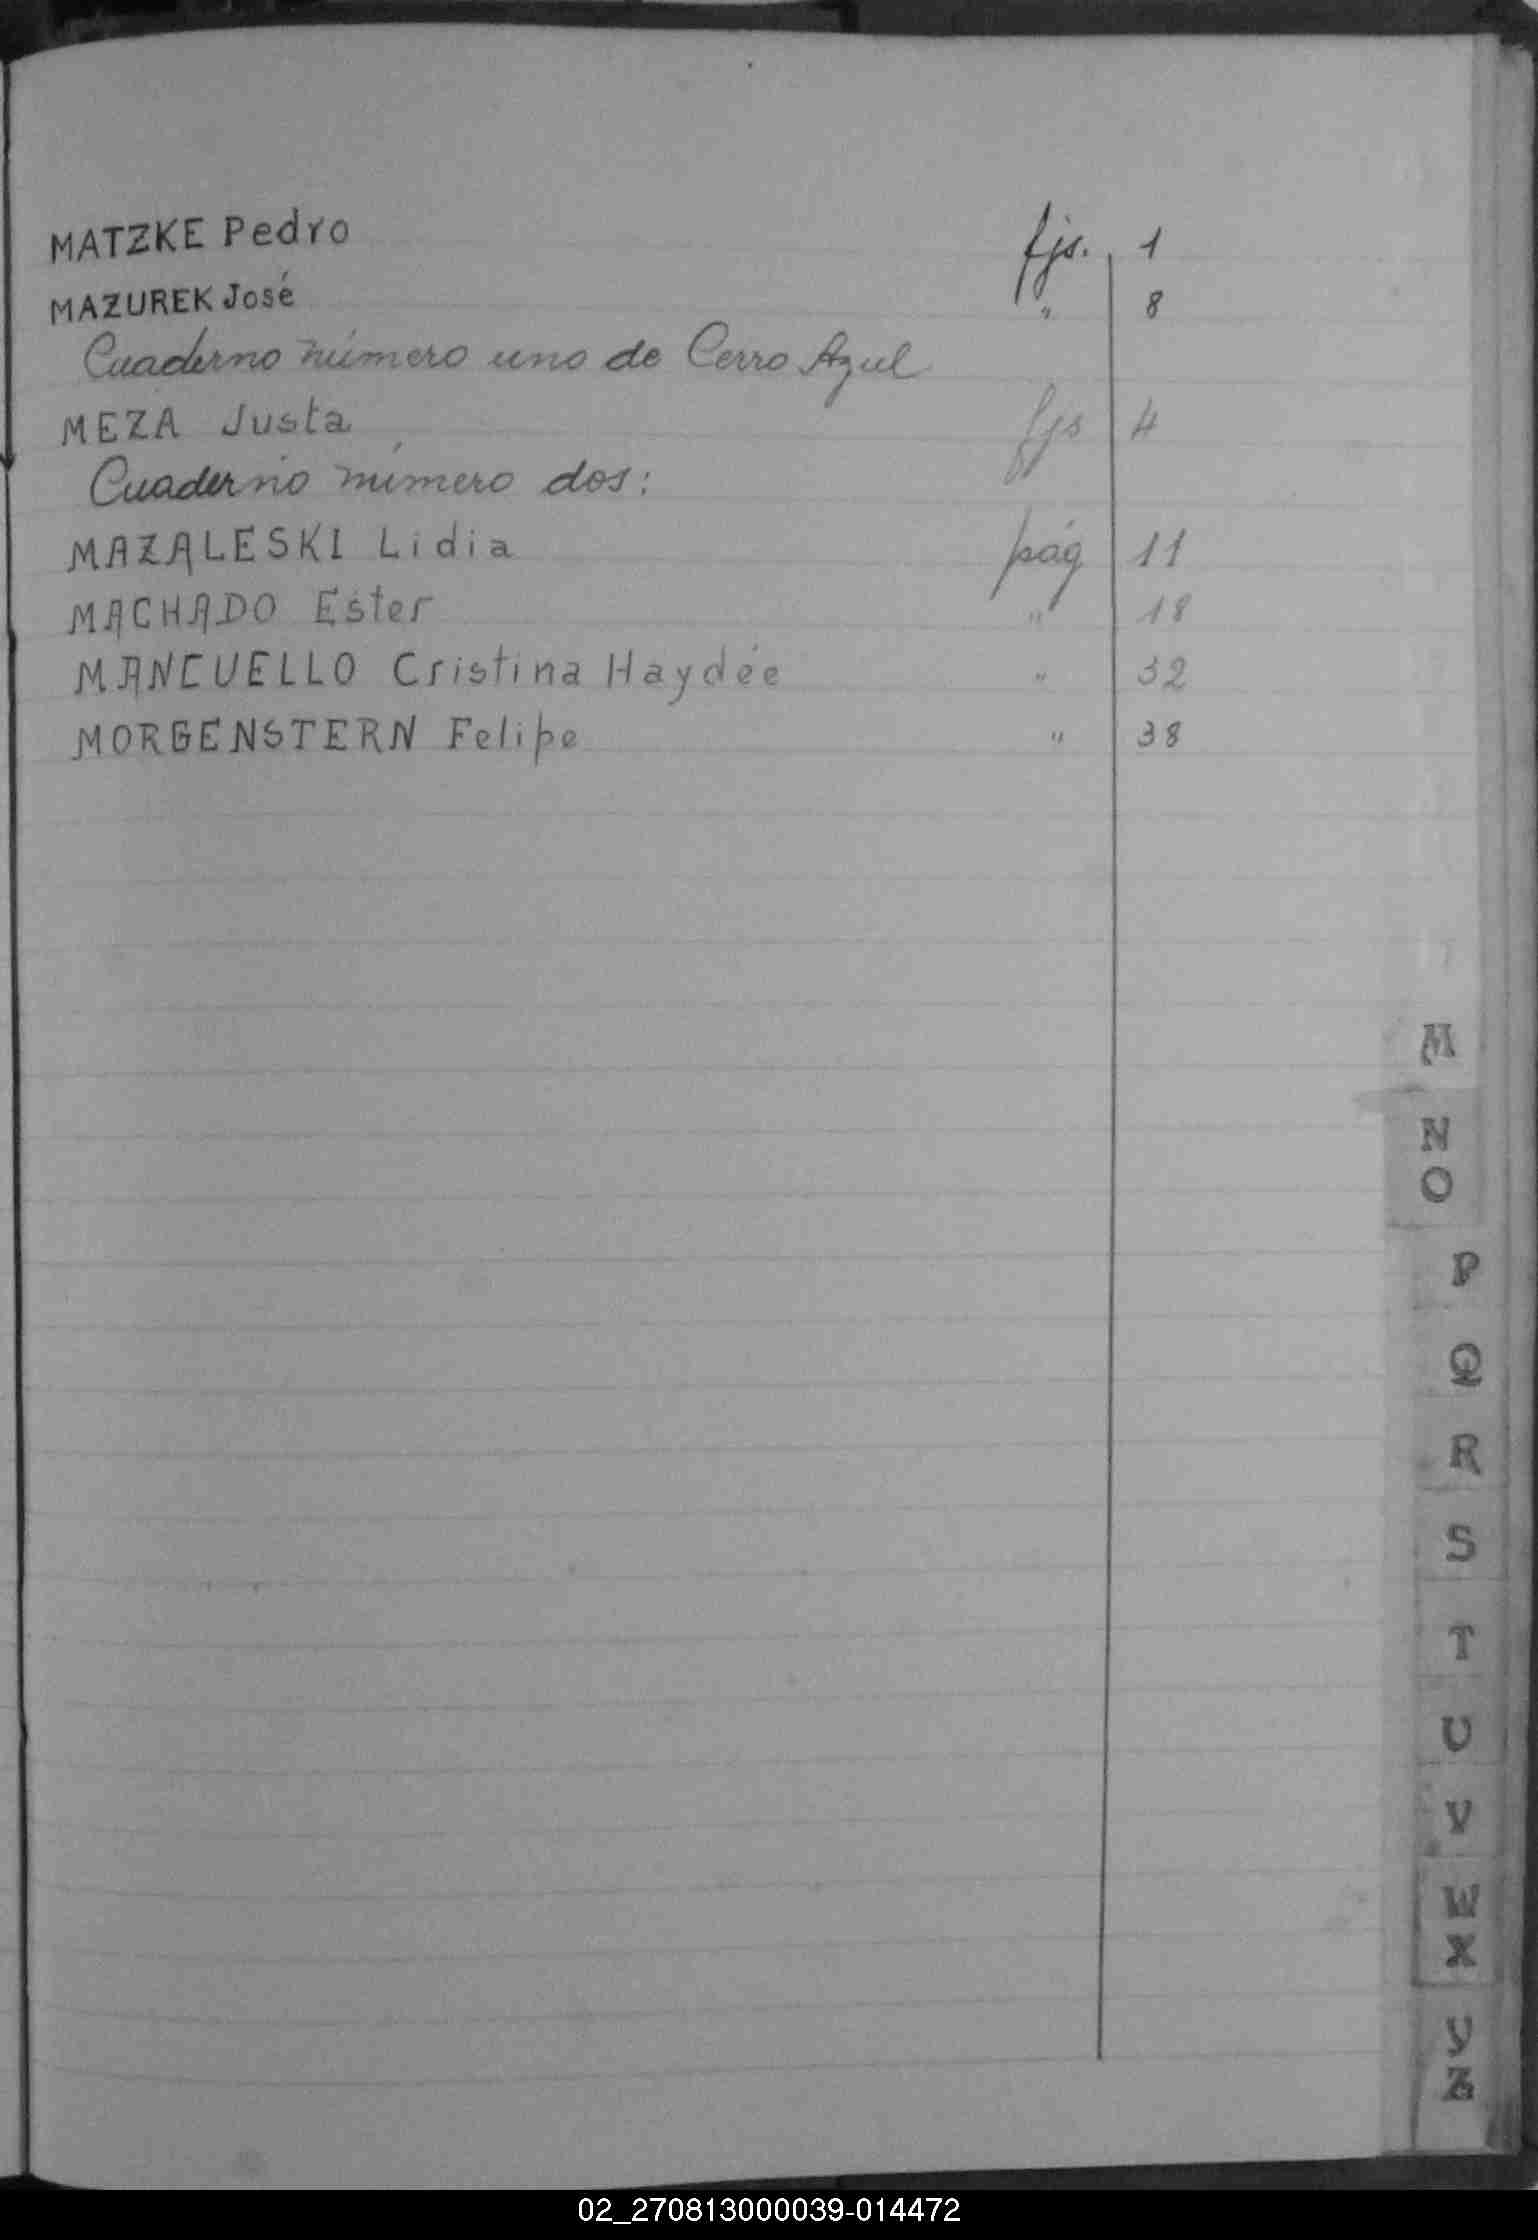 MATZKE Pedro fjs. 1
MAZUREK José " 8
Cuaderno número uno de Cerro Azul
MEZA Justa fjs 4
Cuaderno número dos:
MAZALESKI Lidia pág 11
MACHADO Ester " 18
MANCUELLO Cristina Haydée " 32
MORGENSTERN Felipe " 38
M
N
O
P
Q
R
S
T
U
V
W
X
Y
Z
02_270813000039-014472